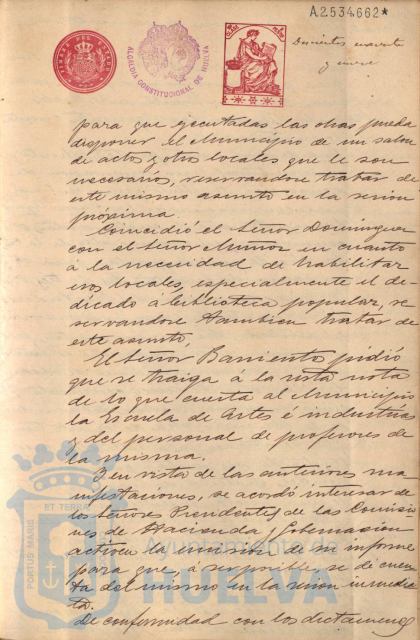 A2534662*
TIMBRE DEL ESTADO
ALCALDIA CONSTITUCIONAL DE HUELVA
Doscientos cuarenta
y nueve
para que ejecutadas las obras pueda
disponer el Municipio de un salon
de actos y otro locales que le son
necesarios, reservandose tratar de
este mismo asunto en la sesion
próxima.
Coincidió el Señor Dominguez
con el Señor Muñoz en cuanto
á la necesidad de habilitar
esos locales, especialmente el de-
dicado á biblioteca popular, re-
servandose tambien tratar de
este asunto.
El Señor Barriento pidió
que se traiga á la vista nota
de lo que cuesta al Municipio
la Escuela de Artes é industrias
y del personal de profesores de
la misma.
Y en vista de las anteriores ma-
nifestaciones, se acordó interesar de
los señores Presidentes de las Comisio-
nes de Hacienda y Gobernacion
activen la emisión de su informe
para que, á ser posible, se dé cuen-
ta del mismo en la sesion inmedia-
ta.
De conformidad con los dictamenes
PORTUS MARIS
ET TERRÆ
Ayuntamiento de
HUELVA